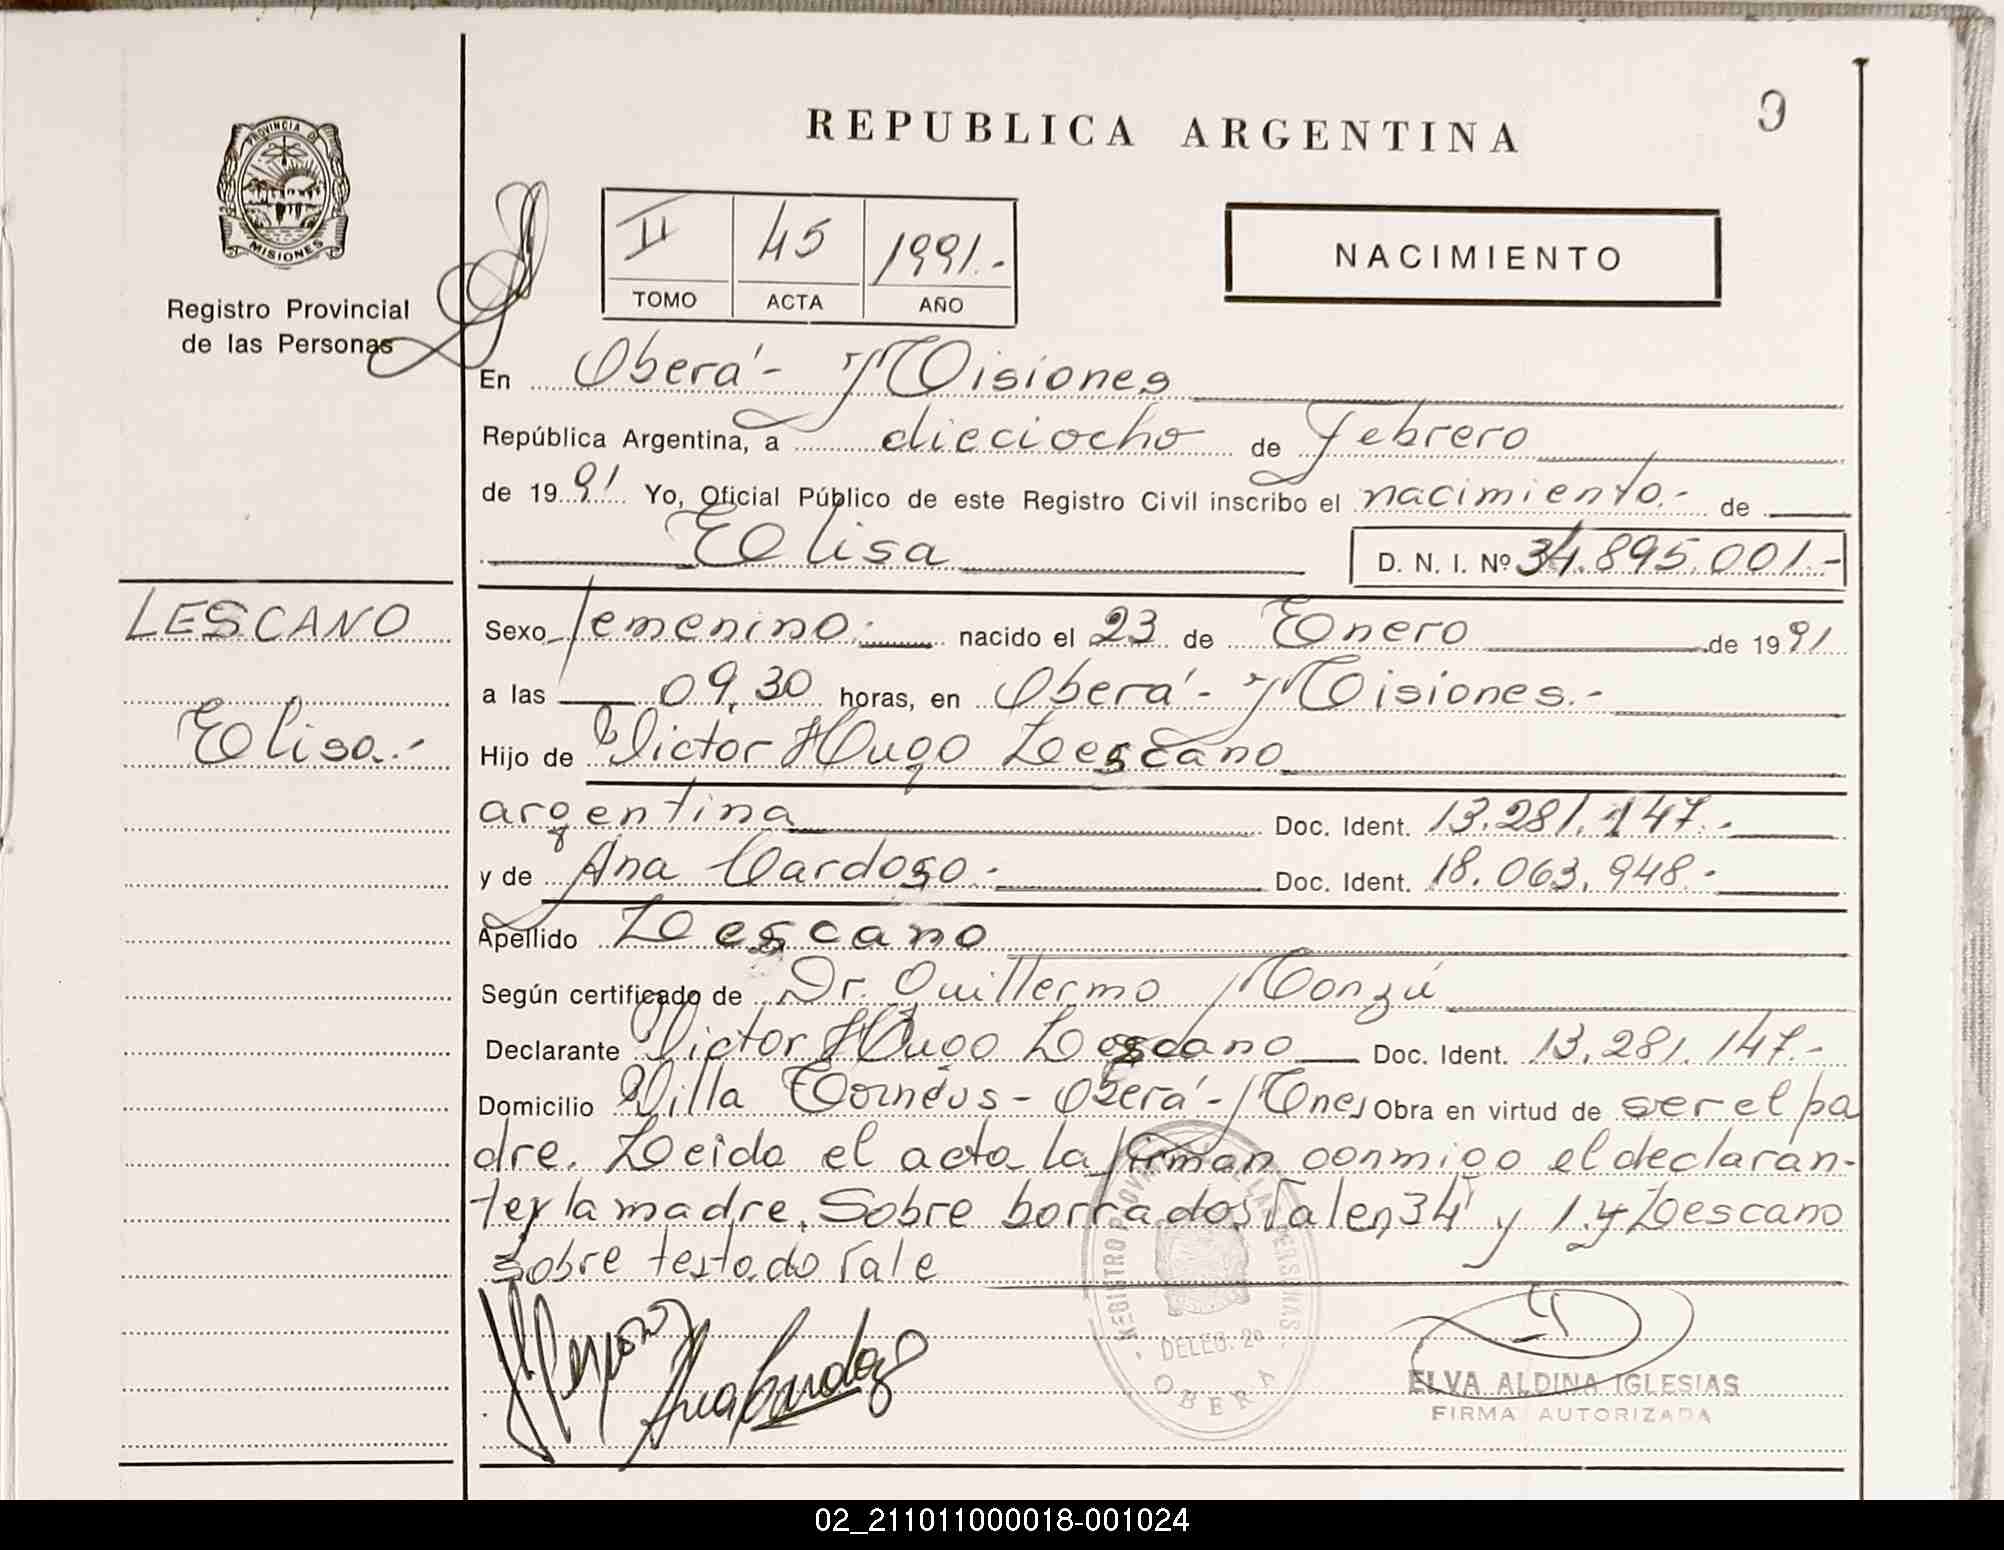 REPUBLICA ARGENTINA
9
PROVINCIA DE
MISIONES
Registro Provincial
de las Personas
II 45 1991.-
TOMO ACTA AÑO
NACIMIENTO
En Oberá - Misiones
República Argentina, a dieciocho de Febrero
de 1991 Yo, Oficial Público de este Registro Civil inscribo el nacimiento.- de
Elisa D. N. I. Nº 34.895.001.-
LESCANO
Elisa.-
Sexo femenino.- nacido el 23 de Enero de 1991
a las 09,30 horas, en Oberá - Misiones.-
Hijo de Victor Hugo Lescano
argentina Doc. Ident. 13.281.147.-
y de Ana Cardozo.- Doc. Ident. 18.063.948.-
Apellido Lescano
Según certificado de Dr. Guillermo Monzú
Declarante Victor Hugo Lescano Doc. Ident. 13.281.147.-
Domicilio Villa - Oberá - Mnes, Obra en virtud de ser el pa
dre. Leida el acta la firman conmigo el declaran-
te y la madre. Sobre borrados Valen 34 y 1. y Lescano
sobre testado Vale
Ana Cardozo
REGISTRO PROVINCIAL DE LAS PERSONAS
DELEG. 2º
OBERA
ELVA ALDINA IGLESIAS
FIRMA AUTORIZADA
02_211011000018-001024